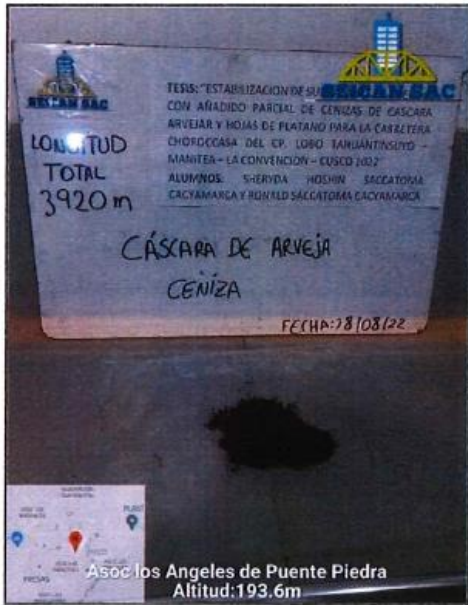 SEICAN SAC
SEICAN SAC
TESIS: "ESTABILIZACION DE
CON AÑADIDO PARCIAL DE CENIZAS DE CASCARA
ARVEJAR Y HOJAS DE PLATANO PARA LA CARRETERA
CHOROCCASA DEL CP. LOBO TAHUANTINSUYO –
MANITEA – LA CONVENCIÓN – CUSCO 2022
ALUMNOS: SHERYDA HOSHIN SACCATOMA
CACYAMARCA Y RONALD SACCATOMA CACYAMARCA
LONGITUD
TOTAL
3920 m
CÁSCARA DE ARVEJA
CENIZA
FECHA: 18/08/22
Asoc los Angeles de Puente Piedra
Altitud:193.6m